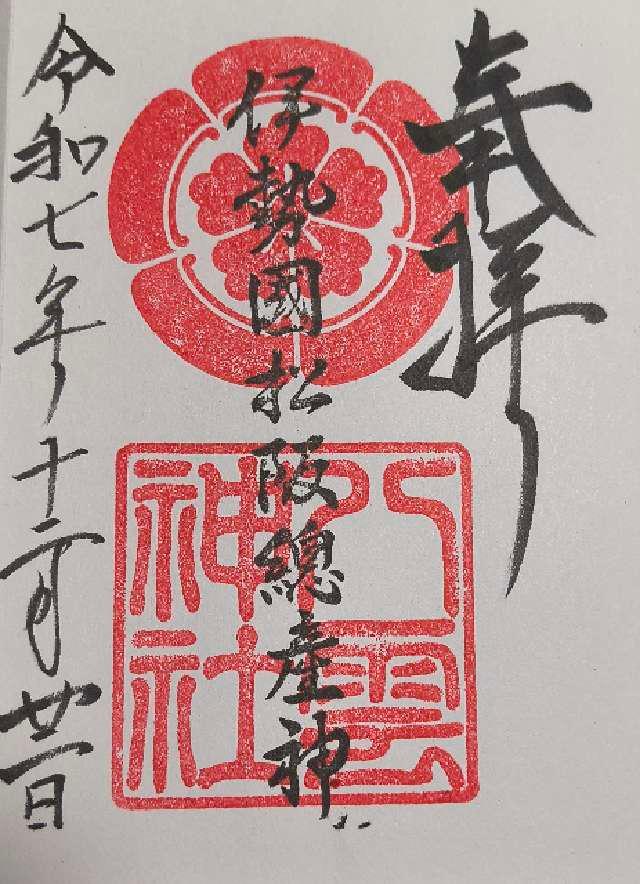 奉拝
伊勢國松阪總産神
八雲神社
令和七年十二月廿一日